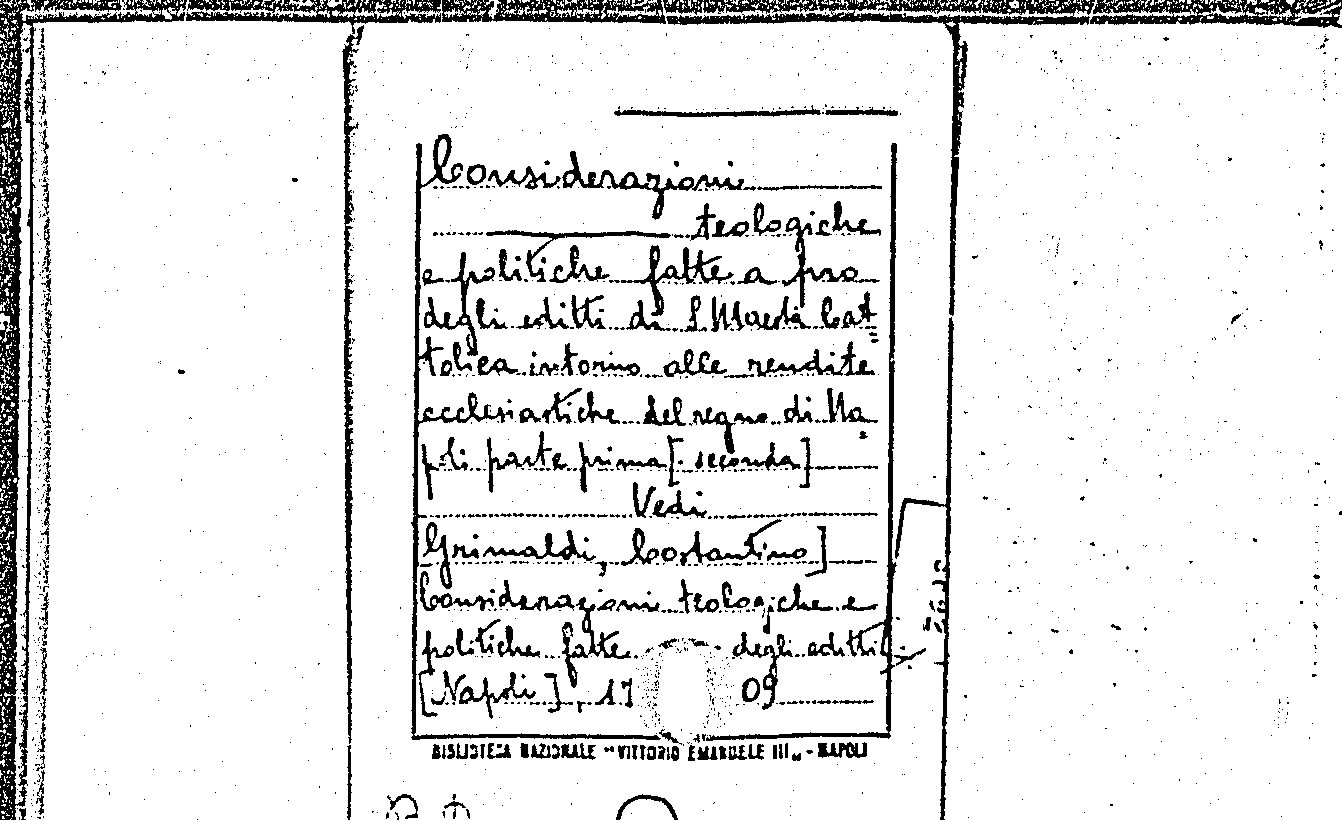 Considerazioni
teologiche
e politiche fatte a pro
degli editti di S. Maestà Cat=
tolica intorno alle rendite
ecclesiastiche del regno di Na=
poli parte prima [. seconda]
Vedi
Grimaldi, Costantino]
Considerazioni teologiche e
politiche fatte degli editti
[Napoli], 1709
BIBLIOTECA NAZIONALE "VITTORIO EMANUELE III" - NAPOLI